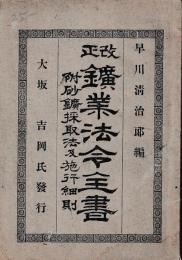 早川清治郎編
改正
鑛業法令全書
附砂鑛採取法及施行細則
大坂 吉岡氏發行